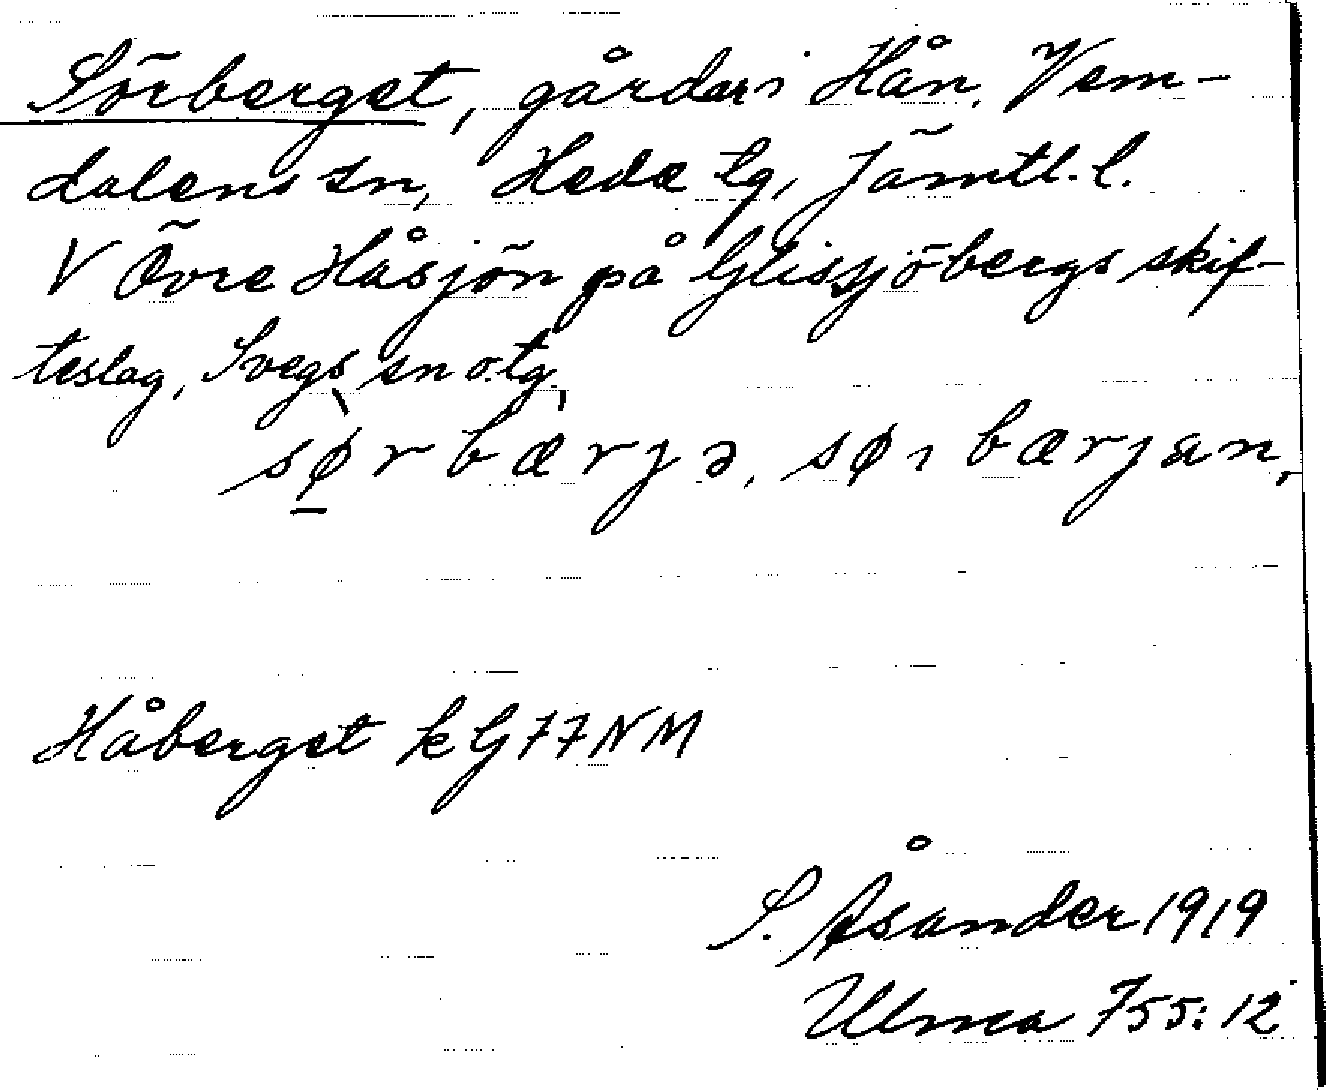 Sörberget, gårdar i Hån, Vem-
dalens sn, Hede tg, Jämtl. l.
V Övre Håsjön på Glissjöbergs skif-
teslag, Svegs sn o. tg.
sø̱rbærjə, sørbærjan,
Håberget k G 77 N M
S. Åsander 1919
Ulma 755:12